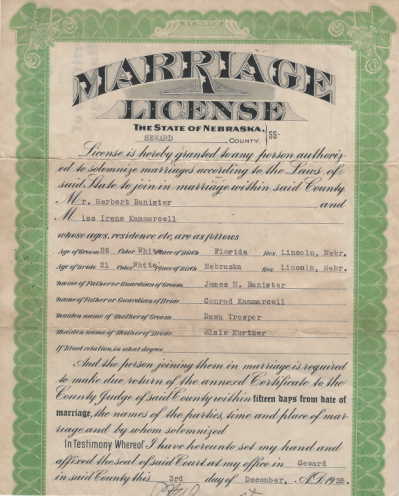 MARRIAGE
LICENSE
THE STATE OF NEBRASKA,
SEWARD COUNTY SS-
License is hereby granted to any person authoriz-
ed to solemnize marriages according to the Laws of
said State to join in marriage within said County
Mr. Herbert Banister and
Miss Irene Kammercell
whose ages, residence etc, are as follows
Age of Groom 26 Color White Place of Birth Florida Res. Lincoln, Nebr.
Age of Bride 21 Color White Place of Birth Nebraska Res Lincoln, Nebr.
Name of Father or Guardian of Groom James H. Banister
Name of Father or Guardian of Bride Conrad Kammercell
Maiden name of Mother of Groom Dawn Trosper
Maiden name of Mother of Bride Elsie Kurther
If blood relation, in what degree
And the person joining them in marriage is required
to make due return of the annexed Certificate to the
County Judge of said County within fifteen days from date of
marriage, the names of the parties, time and place of mar-
riage and by whom solemnized
In Testimony Whereof I have hereunto set my hand and
affixed the seal of said Court at my office in Seward
in said County this 3rd day of December, A.D. 1938.